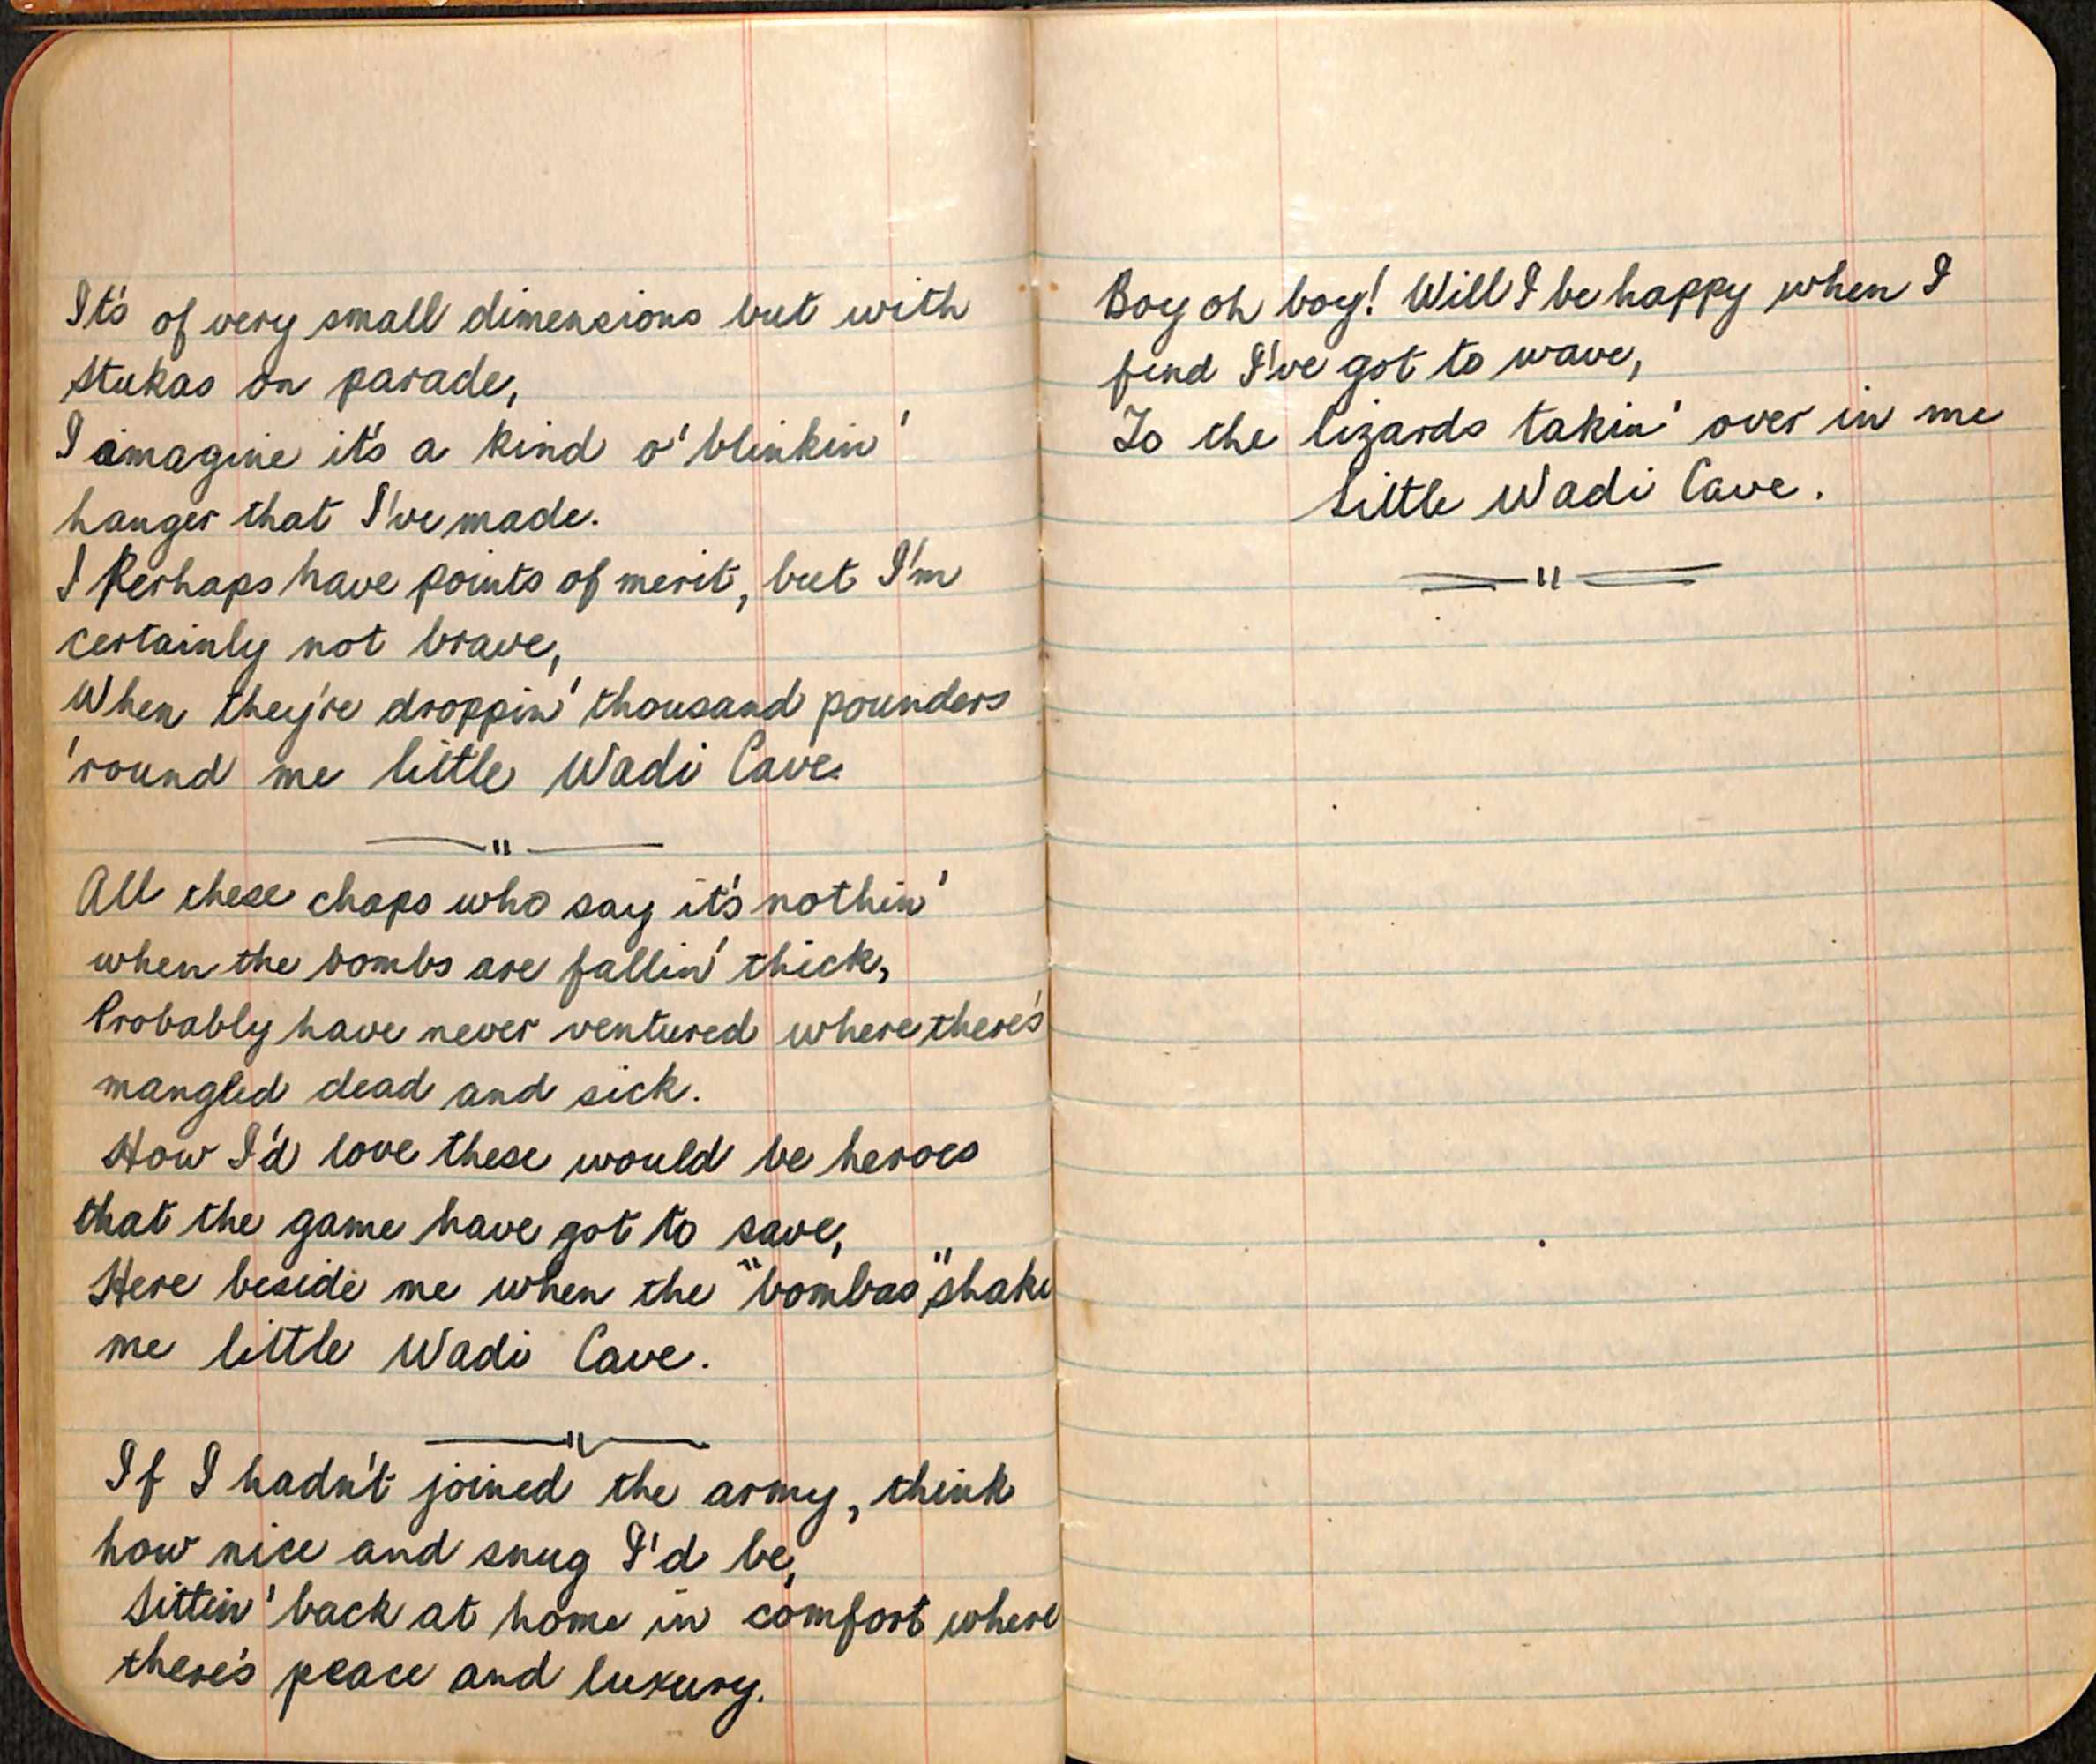 It's of very small dimensions but with
Stukas on parade,
I imagine it's a kind o' blinkin'
hanger that I've made.
I Perhaps have points of merit, but I'm
certainly not brave,
When they're droppin' thousand pounders
'round me little Wadi Cave.
All these chaps who say it's nothin'
when the bombs are fallin' thick,
Probably have never ventured where there's
mangled dead and sick.
How I'd love these would be heroes
that the game have got to save,
Here beside me when the "bombas" shake
me little Wadi Cave.
If I hadn't joined the army, think
how nice and snug I'd be,
Sittin' back at home in comfort where
there's peace and luxury.
Boy oh boy! Will I be happy when I
find I've got to wave,
To the lizards takin' over in me
Little Wadi Cave.